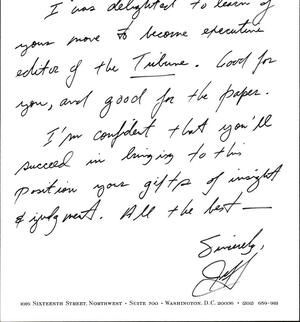 I was delighted to learn of
your move to become executive
editor of the Tribune. Good for
you, and good for the paper.
I'm confident that you'll
succeed in bringing to this
position your gifts of insight
& judgment. All the best —
Sincerely,
Jeff
1016 SIXTEENTH STREET, NORTHWEST • SUITE 700 • WASHINGTON, D.C. 20036 • (202)